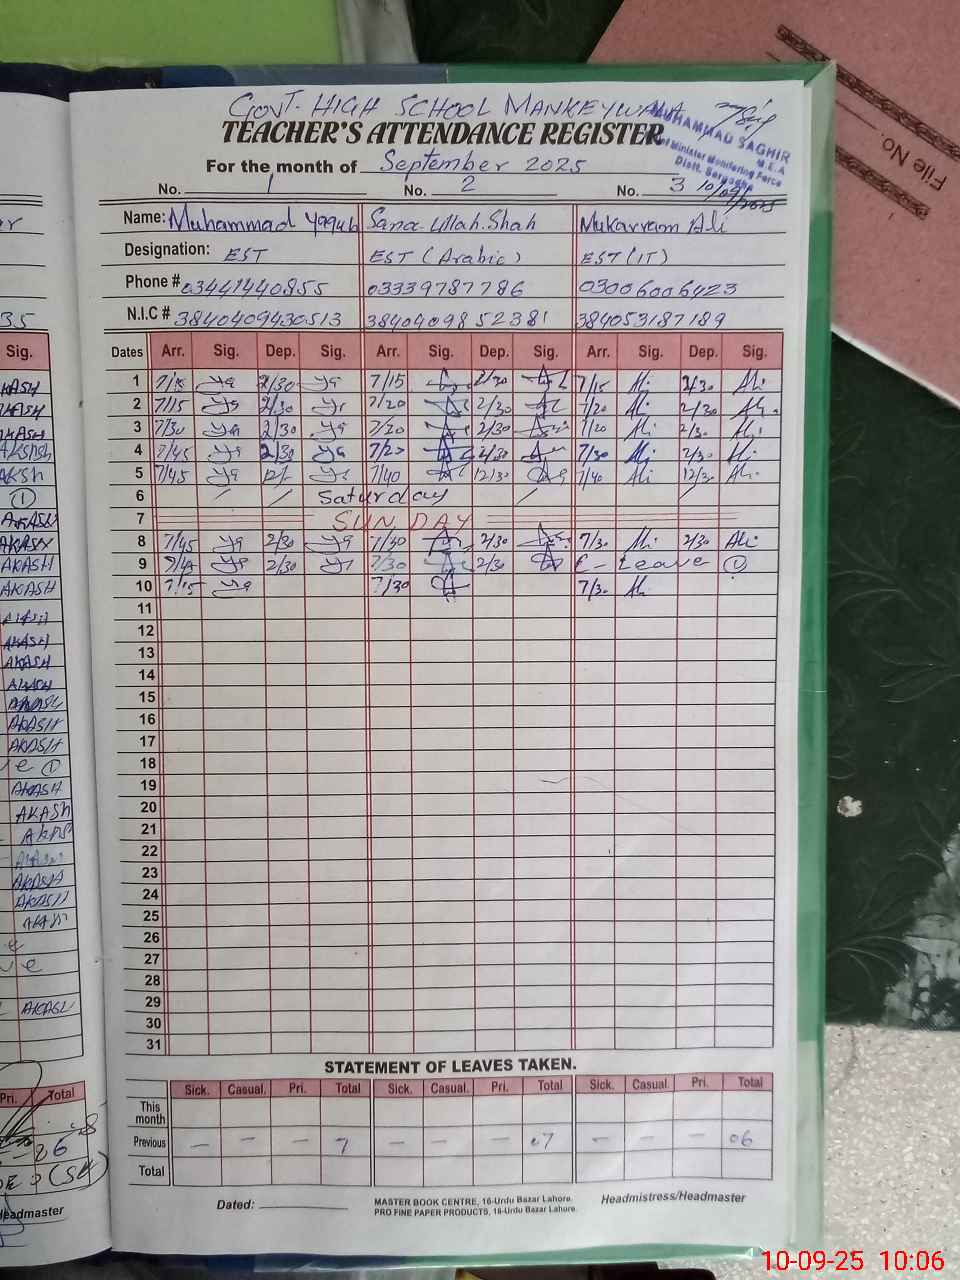 GOVT. HIGH SCHOOL MANKEYWALA
TEACHER'S ATTENDANCE REGISTER
MUHAMMAD SAGHIR
M.E.A
Chief Minister Monitoring Force
Distt. Sargodha
10/09/2025
File No.
For the month of September 2025
No. 1 No. 2 No. 3
Name: Muhammad Yaqub Sana Ullah Shah Mukarram Ali
Designation: EST EST (Arabic) EST (IT)
Phone # 03441440855 03339787786 03006006423
N.I.C # 3840409430513 3840409852381 384053187189
Dates Arr. Sig. Dep. Sig. Arr. Sig. Dep. Sig. Arr. Sig. Dep. Sig.
1 7/15 Ya 2/30 Ya 7/15 2/30 7/15 Ali 2/30 Ali
2 7/15 Ya 2/30 Ya 7/20 2/30 7/20 Ali 2/30 Ali
3 7/30 Ya 2/30 Ya 7/20 2/30 7/20 Ali 2/30 Ali
4 7/45 Ya 2/30 Ya 7/20 2/30 7/30 Ali 2/30 Ali
5 7/45 Ya 12/ Ya 7/40 12/30 7/40 Ali 12/30 Ali
6 Saturday
7 SUNDAY
8 7/45 Ya 2/30 Ya 7/40 2/30 7/30 Ali 2/30 Ali
9 Ya 2/30 Ya 7/30 2/30 C- Leave ①
10 7/15 Ya 7/30 7/30 Ali
11
12
13
14
15
16
17
18
19
20
21
22
23
24
25
26
27
28
29
30
31
STATEMENT OF LEAVES TAKEN.
Sick. Casual. Pri. Total Sick. Casual. Pri. Total Sick. Casual. Pri. Total
This month
Previous – – – 7 – – – 07 – – – 06
Total
Dated:
MASTER BOOK CENTRE, 16-Urdu Bazar Lahore.
PRO FINE PAPER PRODUCTS, 16-Urdu Bazar Lahore.
Headmistress/Headmaster
35
Sig.
AKASH
AKASH
AKASH
AKASH
AKASH
①
AKASH
AKASH
AKASH
AKASH
AKASH
AKASH
AKASH
AKASH
AKASH
AKASH
AKASH
①
AKASH
AKASH
AKASH
AKASH
AKASH
AKASH
AKASH
AKASH
Pri. Total
Headmaster
10-09-25 10:06